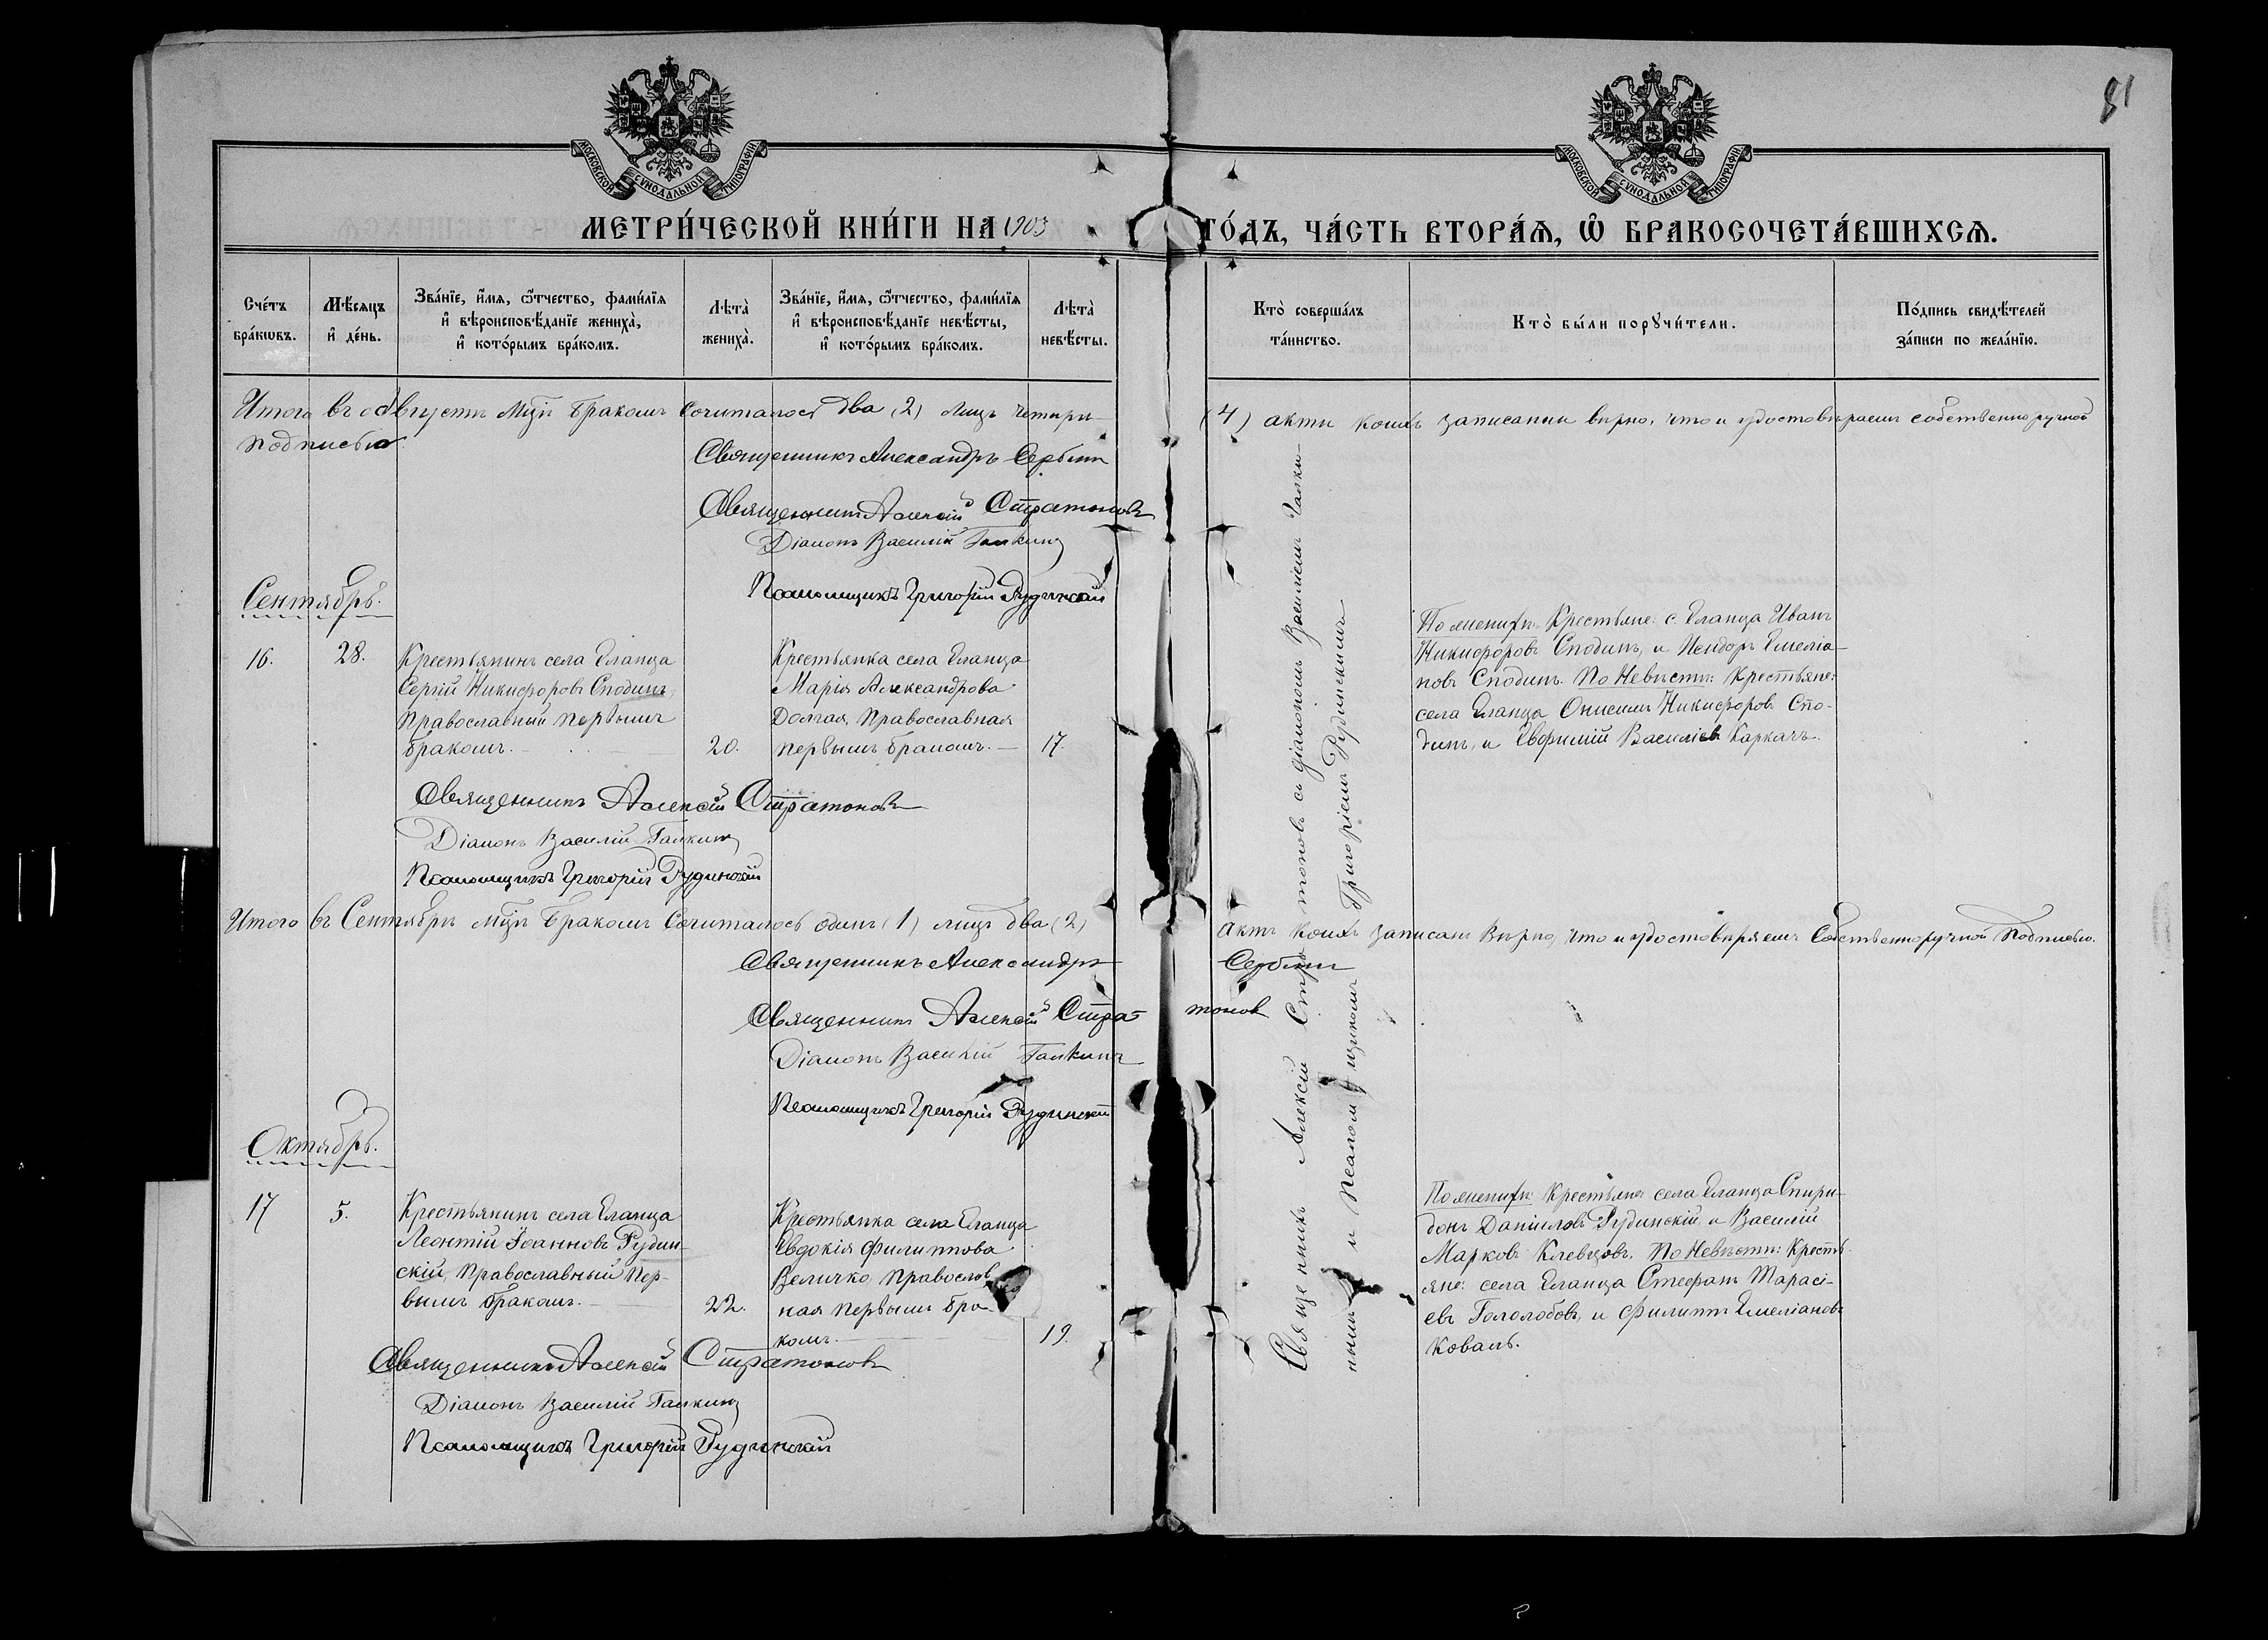 81
МОСКОВСКОЙ СѴНОДАЛЬНОЙ ТИПОГРАФІИ
МОСКОВСКОЙ СѴНОДАЛЬНОЙ ТИПОГРАФІИ
МЕТРИ́ЧЕСКОЙ КНИ́ГИ НА 1903 ГО́ДЪ, ЧА́СТЬ ВТОРА́Ѧ, Ѡ҆ БРАКОСОЧЕТА́ВШИХСѦ.
Сче́тъ бра́кѡвъ.
Мѣ́сяцъ и҆ де́нь.
Зва́нїе, и҆́мя, ѻ҆́тчество, фами́лїя и҆ вѣроисповѣ́данїе жениха̀, и҆ кото́рымъ бра́комъ.
Лѣта̀ жениха̀.
Зва́нїе, и҆́мя, ѻ҆́тчество, фами́лїя и҆ вѣроисповѣ́данїе невѣ́сты, и҆ кото́рымъ бра́комъ.
Лѣта̀ невѣ́сты.
Кто̀ соверша́лъ та́инство.
Кто̀ бы́ли порꙋчи́тели.
По́дпись свидѣ́телей за́писи по жела́нїю.
Итого въ Августѣ мцѣ бракомъ сочиталось два (2) лицъ четыри (4) акты коихъ записаны вѣрно, что и удостовѣряемъ собственноручной
подписью.
Священникъ Александръ Сербин
Священникъ Алексій Стратоновъ
Діаконъ Василій Галкинъ
Псаломщикъ Григорій Рудинскій
Сентябрь.
16.
28.
Крестьянинъ села Еланца
Сергій Никифоровъ Сподинъ,
православный первымъ
бракомъ.
20.
Крестьянка села Еланца
Марія Александрова
Долгая, православная
первымъ бракомъ.
17.
По женихѣ: Крестьяне: с. Еланца Иванъ
Никифоровъ Сподинъ, и Исидоръ Емелiа-
новъ Сподинъ. По Невѣстѣ: Крестьяне:
села Еланца Онисимъ Никифоровъ Спо-
динъ, и Евфимій Василіевъ Каркачъ.
Священникъ Алексій Стратоновъ
Діаконъ Василій Галкинъ
Псаломщикъ Григорій Рудинскій
Итого въ Сентябрѣ мцѣ бракомъ сочиталось одинъ (1) лицъ два (2) актъ коихъ записанъ вѣрно, что и удостовѣряемъ собственноручной подписью.
Священникъ Александръ Сербин
Священникъ Алексій Стратонов
Діаконъ Василій Галкинъ
Псаломщикъ Григорій Рудинскій
Октябрь.
17
5.
Крестьянинъ села Еланца
Леонтій Іоанновъ Рудин-
скій, православный пер-
вымъ бракомъ.
22.
Крестьянка села Еланца
Евдокія Филиппова
Величко, православ
ная первымъ бра-
комъ.
19.
По женихѣ: Крестьяне села Еланца Спири-
донъ Даніиловъ Рудинскій, и Василій
Марковъ Клевцовъ. По Невѣстѣ: Кресть-
яне: села Еланца Стефанъ Тарасі-
евъ Гололобовъ, и Филиппъ Емеліановъ
Коваль.
Священникъ Алексій Стратоновъ
Діаконъ Василій Галкинъ
Псаломщикъ Григорій Рудинскій
Священникъ Алексій Стратоновъ съ діакономъ Василіемъ Галки-
нымъ и псаломщикомъ Григоріемъ Рудинскимъ